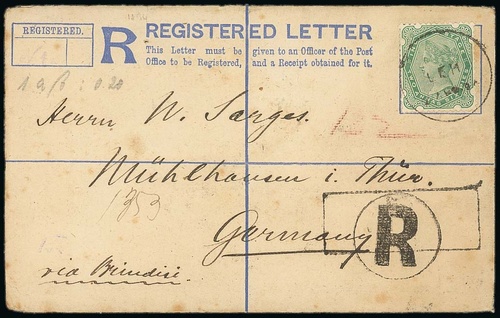 REGISTERED.
R
REGISTERED LETTER
This Letter must be given to an Officer of the Post
Office to be Registered, and a Receipt obtained for it.
Herrn W. Sarges.
Mühlhausen i. Thür.
1353
Germany
R
via Brindisi.